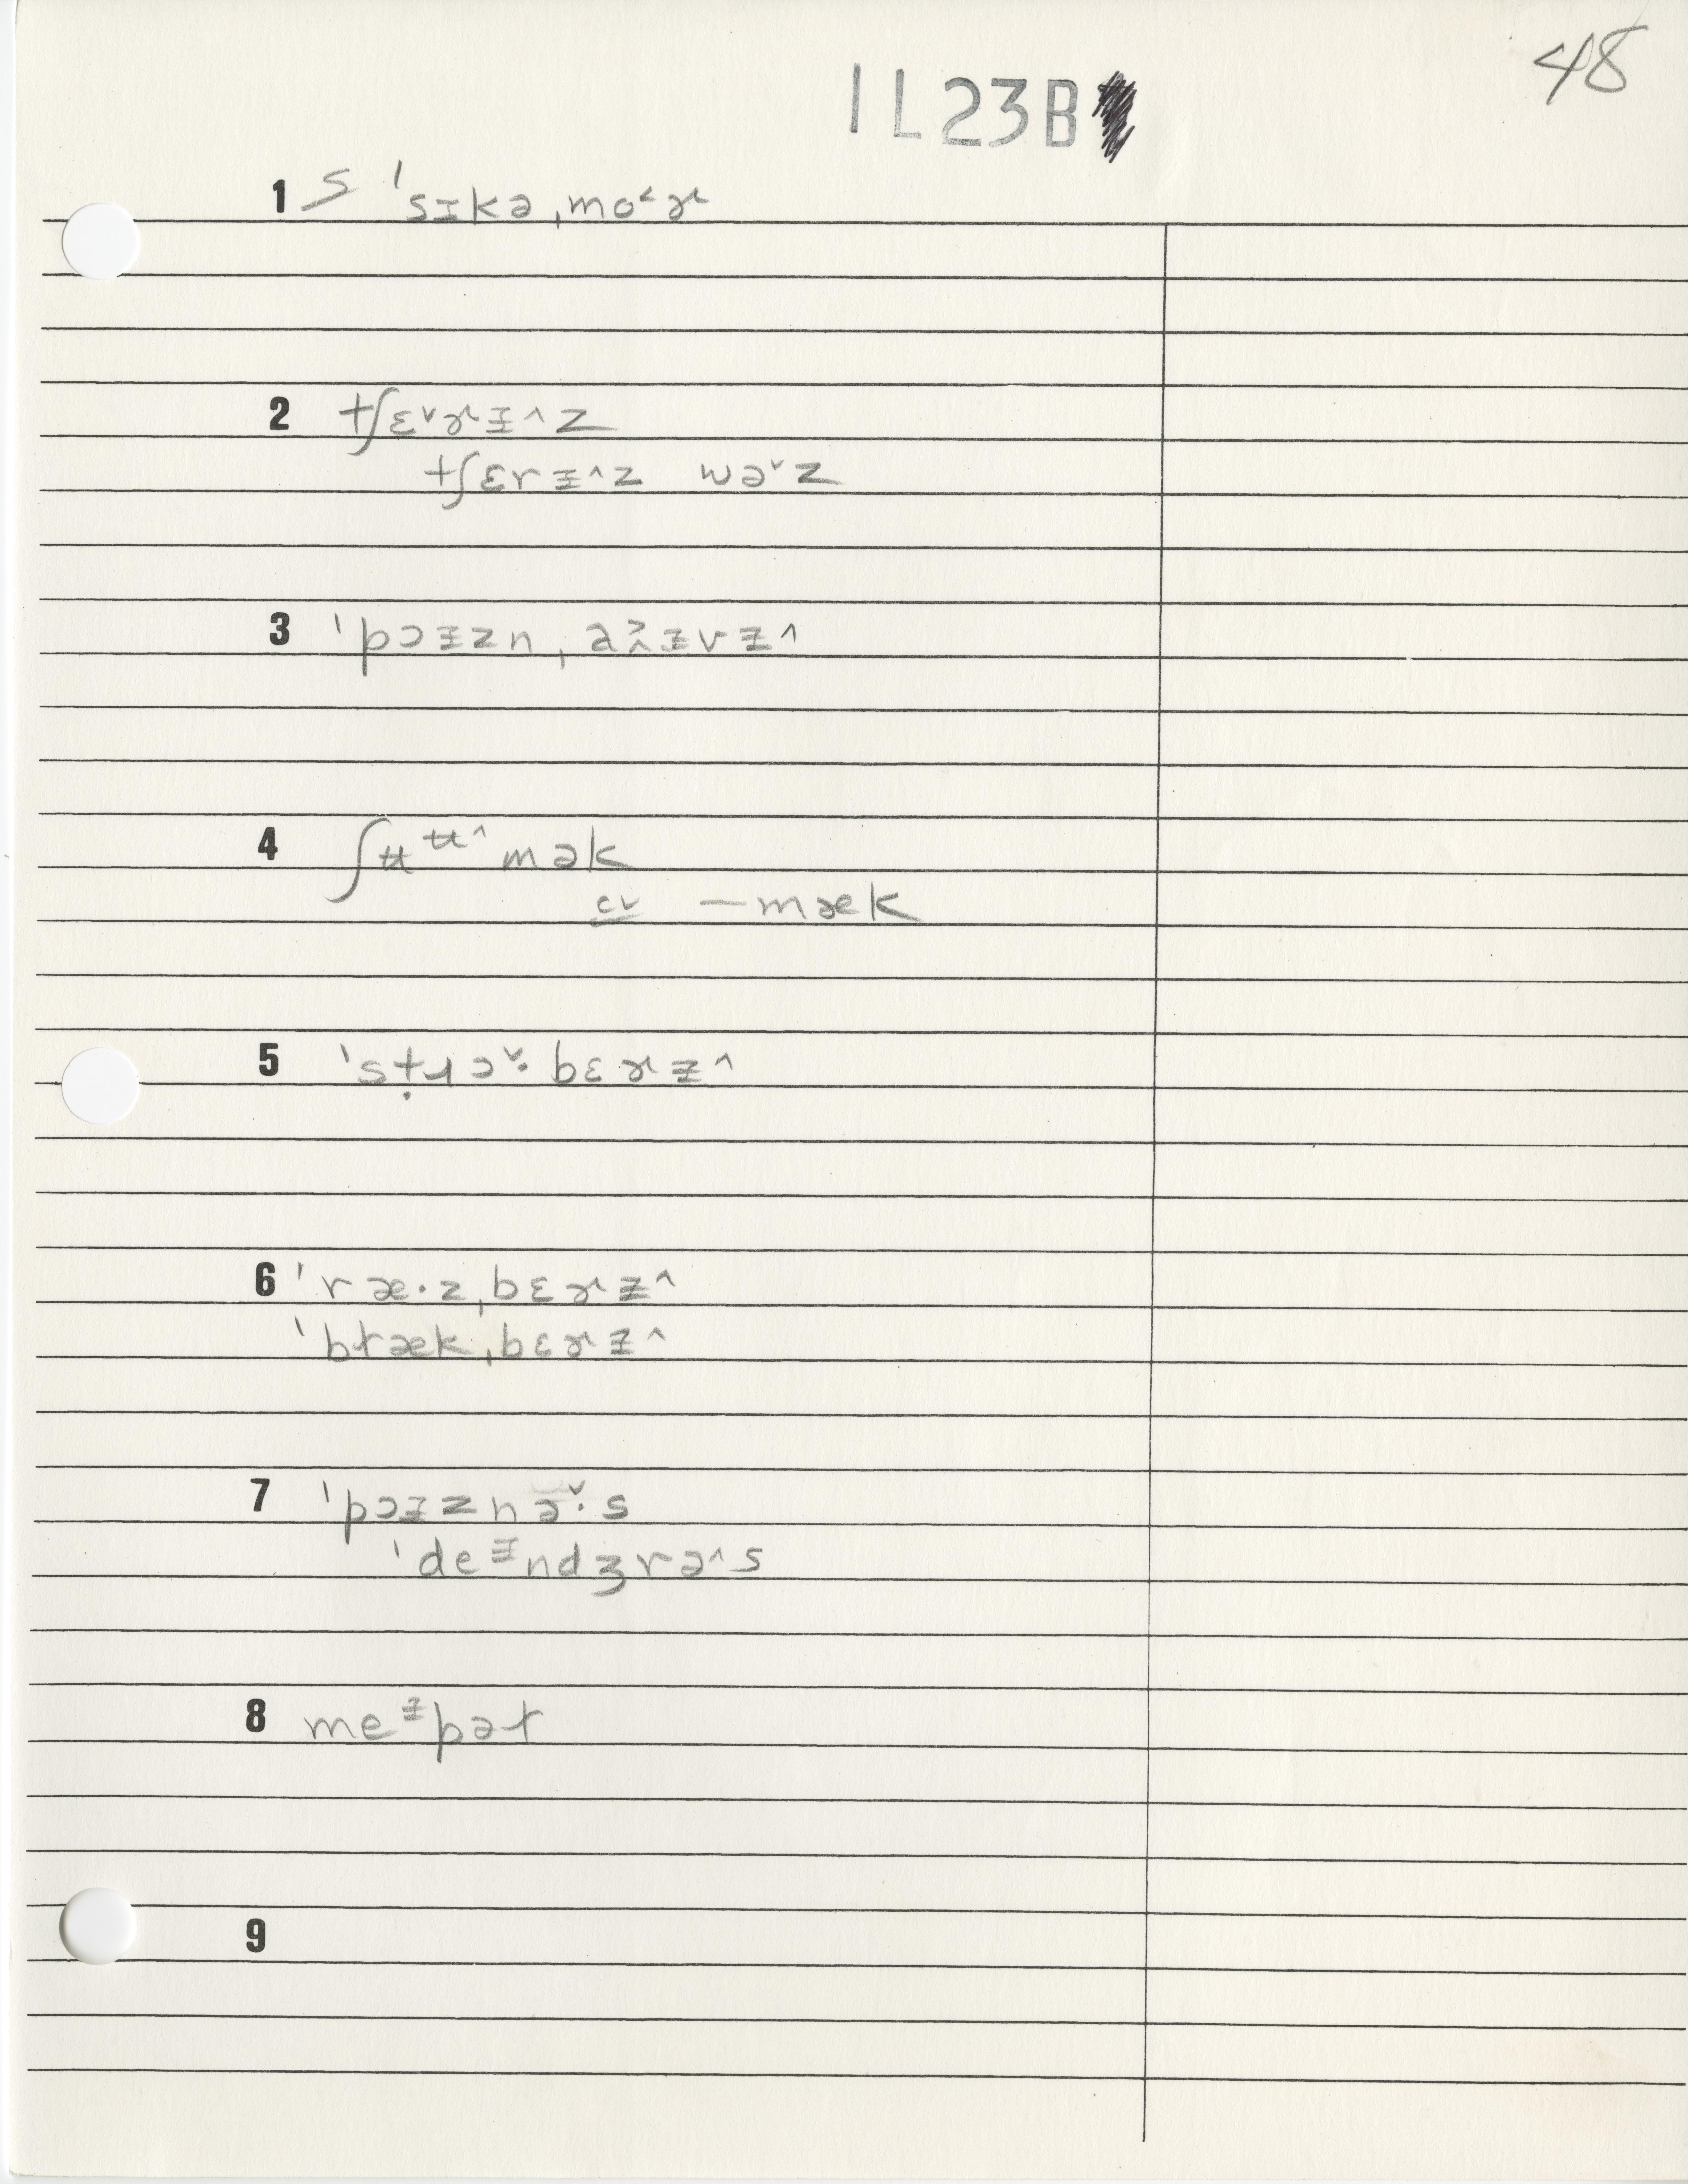 48
1L23B
1 S ˈsɪkəˌmo˂ɚ
2 tʃɛ˅ɚᵻ˄z
tʃɛrᵻ˄z wə˅z
3 ˈpɔᵻznˌ a˃˄ᵻvᵻ˄
4 ʃʉᵾ˄mək
cv —mæk
5 ˈsṭɹɔ˅·bɛɚᵻ˄
6 ˈræ·zˌbɛɚᵻ˄
ˈblækˌbɛɚᵻ˄
7 ˈpɔᵻznə˅·s
ˈdeᵻndʒrə˄s
8 meᵻpət
9